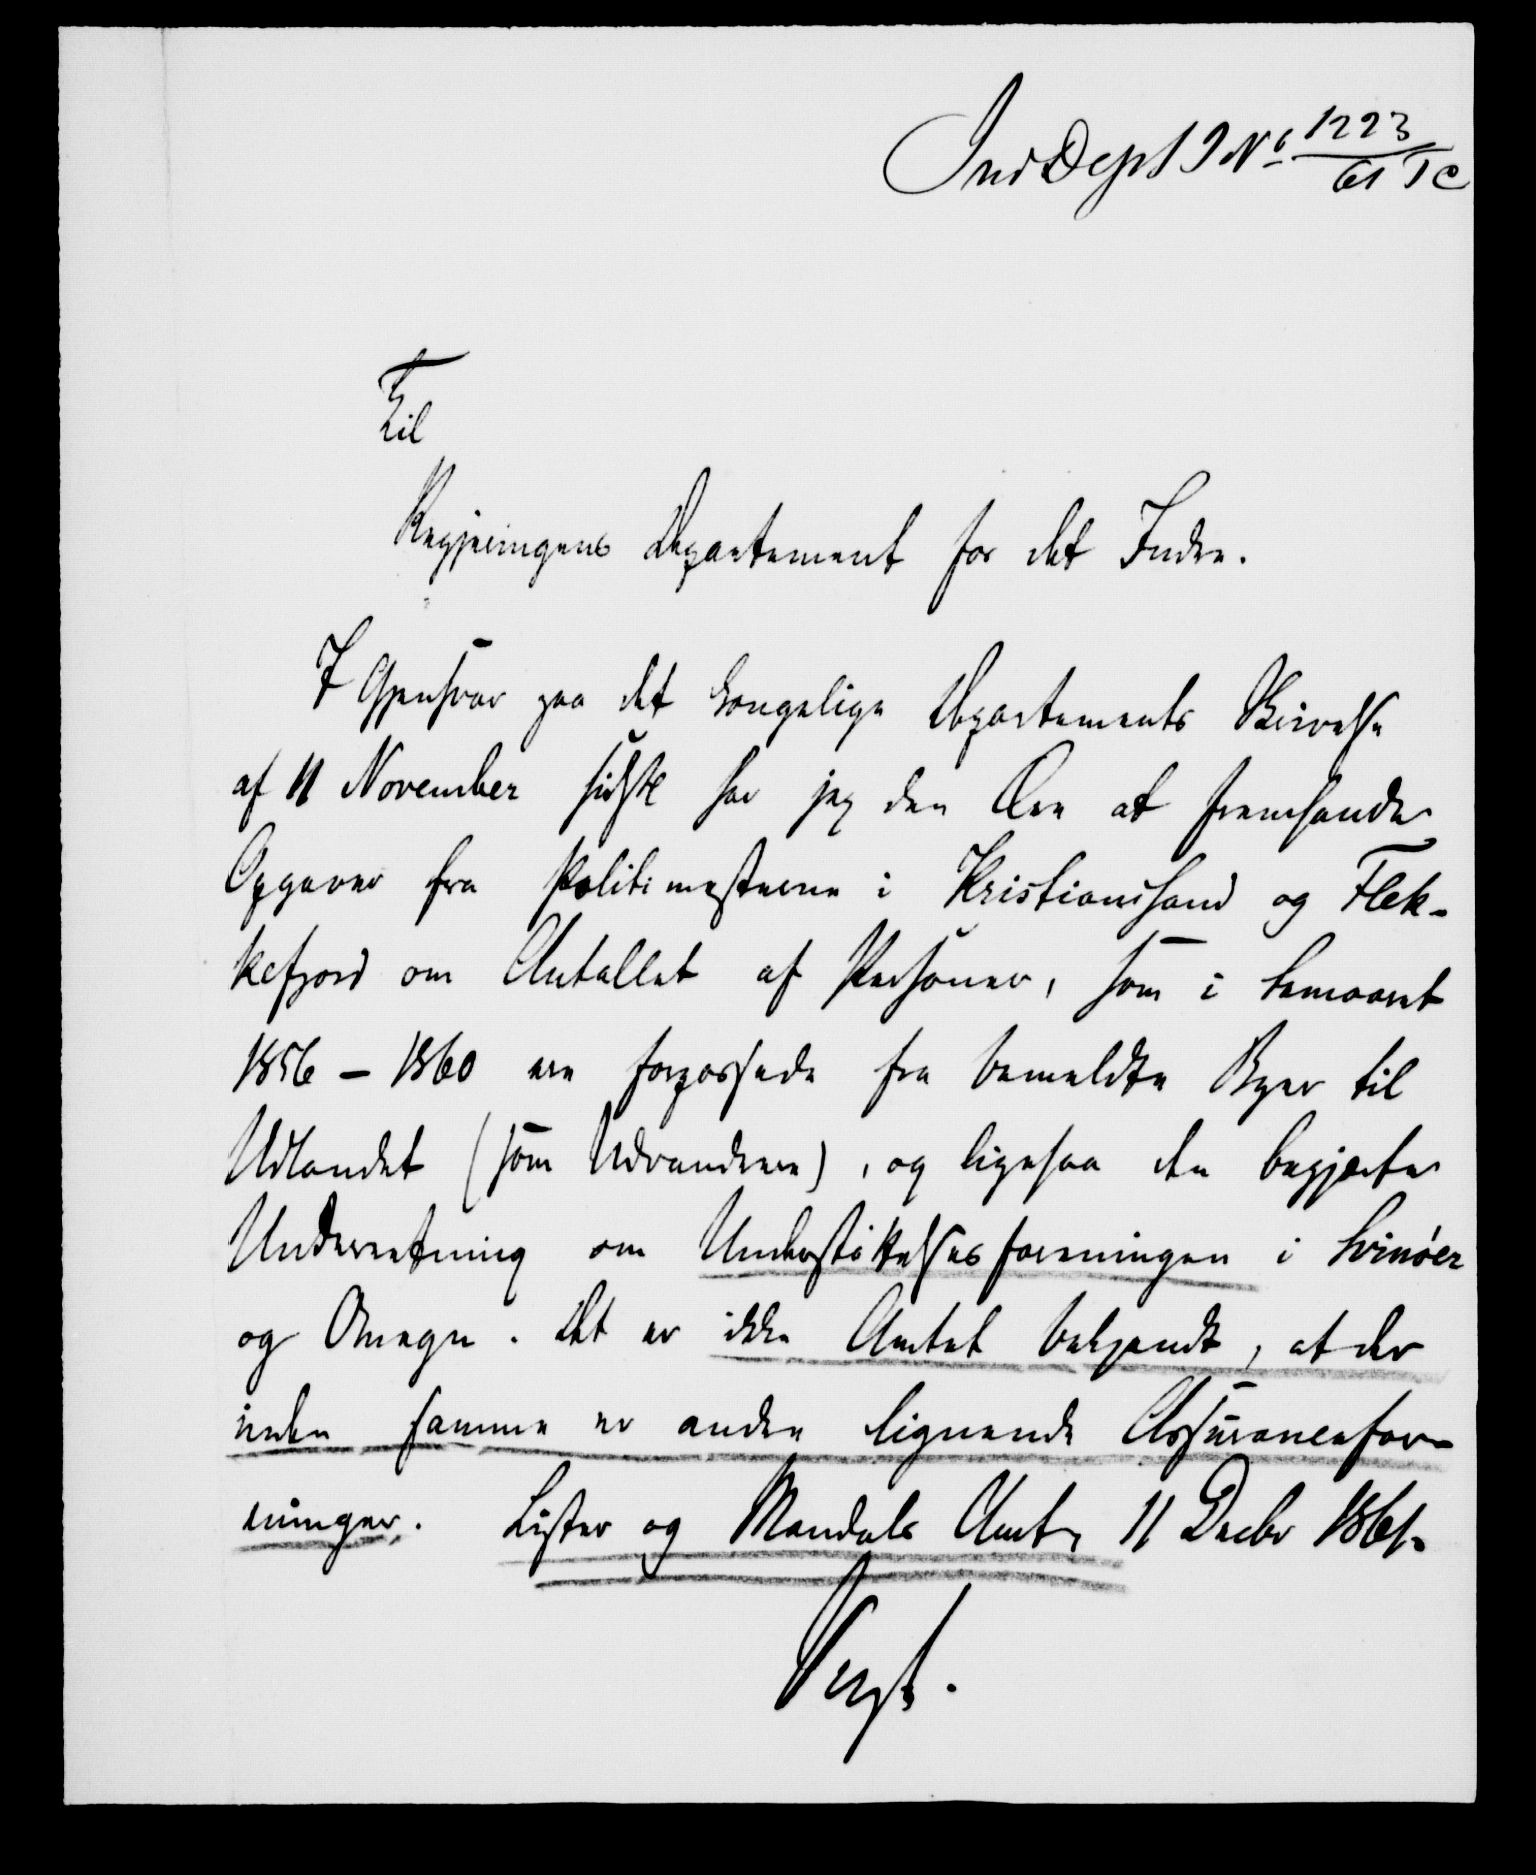 Ind Dept J No 1223/61 T C
Til
Regjeringens Departement for det Indre.
I Gjensvar paa det kongelige Departements Skrivelse
af 11 November sidstl har jeg den Ære at fremsende
Opgaver fra Politimesterne i Kristianssand og Flek-
kefjord om Antallet af Personer, som i Femaaret
1856 - 1860 ere forpassede fra bemeldte Byer til
Udlandet (som Udvandrere), og ligesaa den begjærte
Underretning om Understøttelsesforeningen i Svinöer
og Omegn. Det er ikke Amtet bekjendt, at der
inden samme er andre lignende Assuranceefor-
eninger. Lister og Mandals Amt, 11 Decbr 1861.
Vogt.